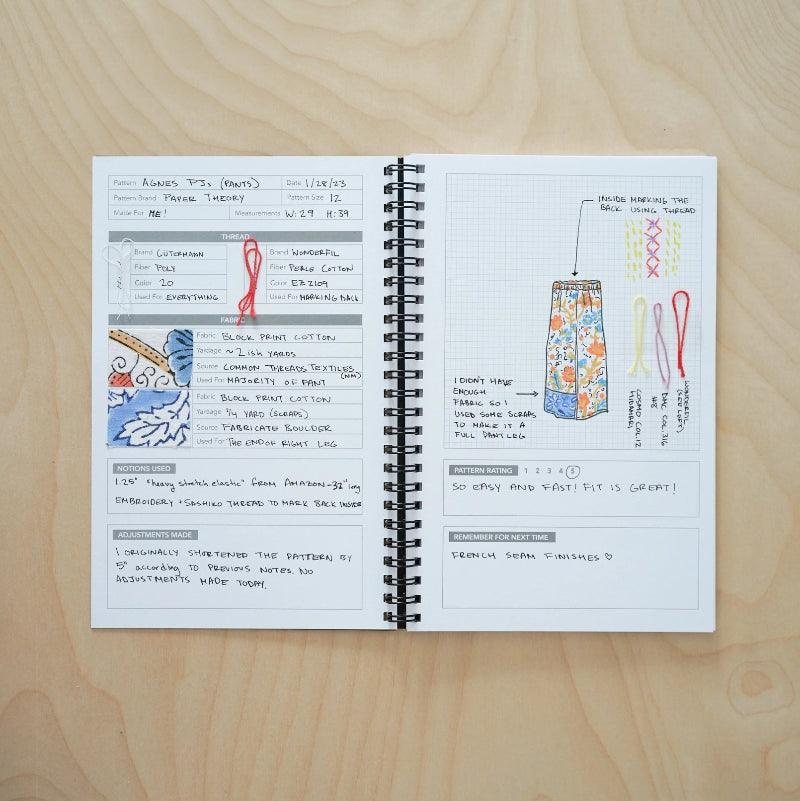 Pattern AGNES PJs (PANTS) Date 1/28/23
Pattern Brand PAPER THEORY Pattern Size 12
Made For ME! Measurements W:29 H:39
THREAD
Brand GUTERMANN
Fiber POLY
Color 20
Used For EVERYTHING
Brand WONDERFIL
Fiber PERLE COTTON
Color EZ2109
Used For MARKING BACK
FABRIC
Fabric BLOCK PRINT COTTON
Yardage ~2 ISH YARDS
Source COMMON THREADS TEXTILES
(NM)
Used For MAJORITY OF PANT
Fabric BLOCK PRINT COTTON
Yardage 1/4 YARD (SCRAPS)
Source FABRICATE BOULDER
Used For THE END OF RIGHT LEG
NOTIONS USED
1.25" "heavy stretch elastic" FROM AMAZON - 32" long
EMBROIDERY + SASHIKO THREAD TO MARK BACK INSIDE
ADJUSTMENTS MADE
I ORIGINALLY SHORTENED THE PATTERN BY
5" according TO PREVIOUS NOTES. NO
ADJUSTMENTS MADE TODAY.
INSIDE MARKING THE
BACK USING THREAD
I DIDN'T HAVE
ENOUGH
FABRIC SO I
USED SOME SCRAPS
TO MAKE IT A
FULL PANT LEG
COSMO COL 12
HIDAMARI
DMC COL 316
#8
WONDERFIL
(SEE LEFT)
PATTERN RATING 1 2 3 4 5
SO EASY AND FAST! FIT IS GREAT!
REMEMBER FOR NEXT TIME
FRENCH SEAM FINISHES ♡